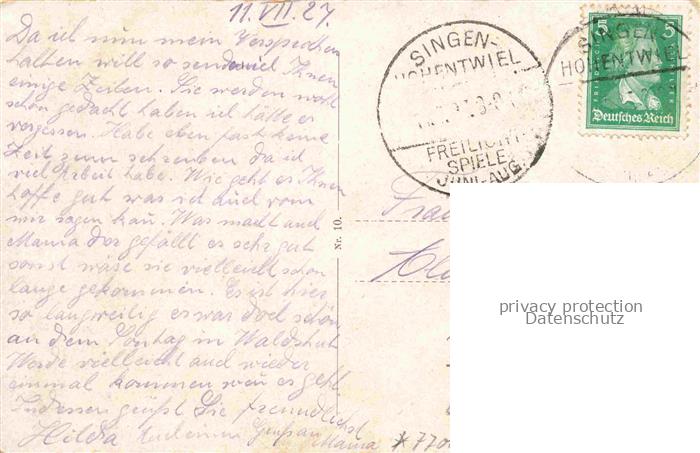 11. VII. 27.
Da ich nun mein Versprechen
halten will so sende ich Ihnen
einige Zeilen. Sie werden wohl
schon gedacht haben ich hätte es
vergessen. Habe eben fast keine
Zeit zum schreiben da ich
viel Arbeit habe. Wie geht es Ihnen
hoffe gut was ich auch von
mir sagen kan. Was macht auch
Mama der gefällt es sehr gut
sonst wäre sie vielleicht schon
lange gekommen. Es ist hier
so langweilig es war doch schön
an dem Sontag in Waldshut
Werde vielleicht auch wieder
einmal kommen wen es geht
Indessen grüßt Sie freundlichst
Hilda auch einen Gruß an
Mama
Nr. 10.
SINGEN-
HOHENTWIEL
FREILICHT-
SPIELE
JUNI-AUG.
SINGEN-
HOHENTWIEL
5 5
Deutsches Reich
privacy protection
Datenschutz